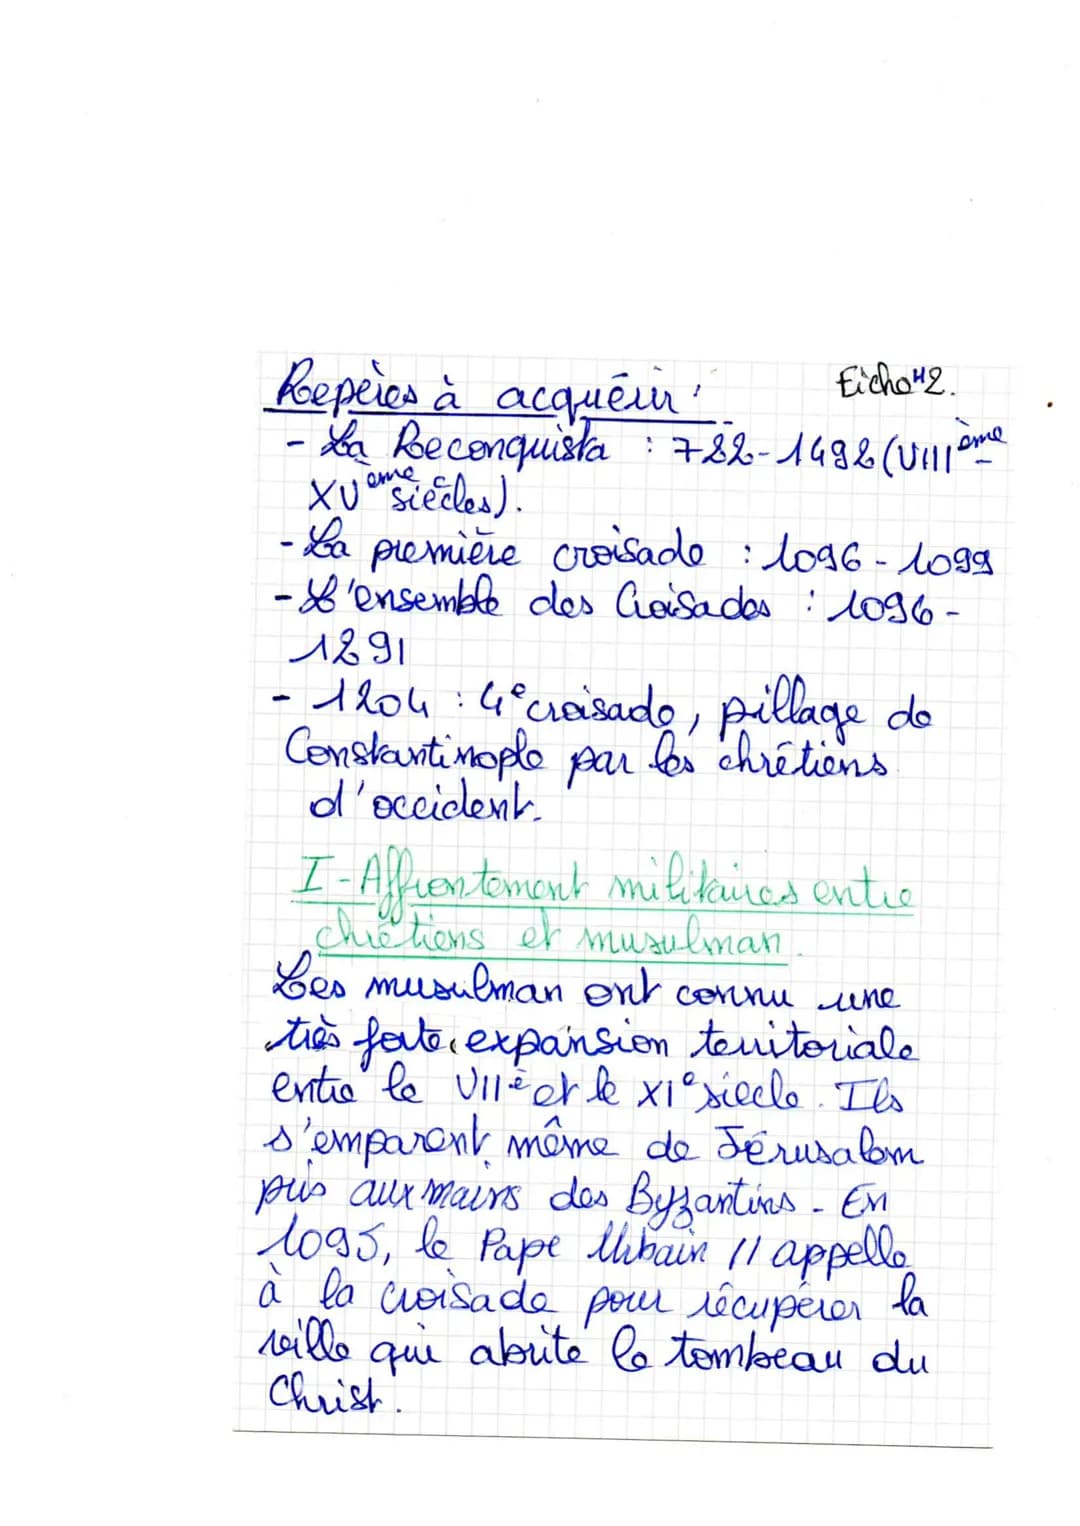 Repères à acquérir : Fiche H2.
- La Reconquista : 722-1492 (VIIIème -
XVème siècles).
- La première croisade : 1096 - 1099
- L'ensemble des Croisades : 1096 -
1291
- 1204 : 4e croisade, pillage de
Constantinople par les chrétiens
d'occident.
I - Affrontement militaires entre
chrétiens et musulman.
Les musulman ont connu une
très forte expansion territoriale
entre le VIIe et le XIe siècle. Ils
s'emparent même de Jérusalem
pris aux mains des Byzantins. En
1095, le Pape Urbain II appelle
à la croisade pour récupérer la
ville qui abrite le tombeau du
Christ.